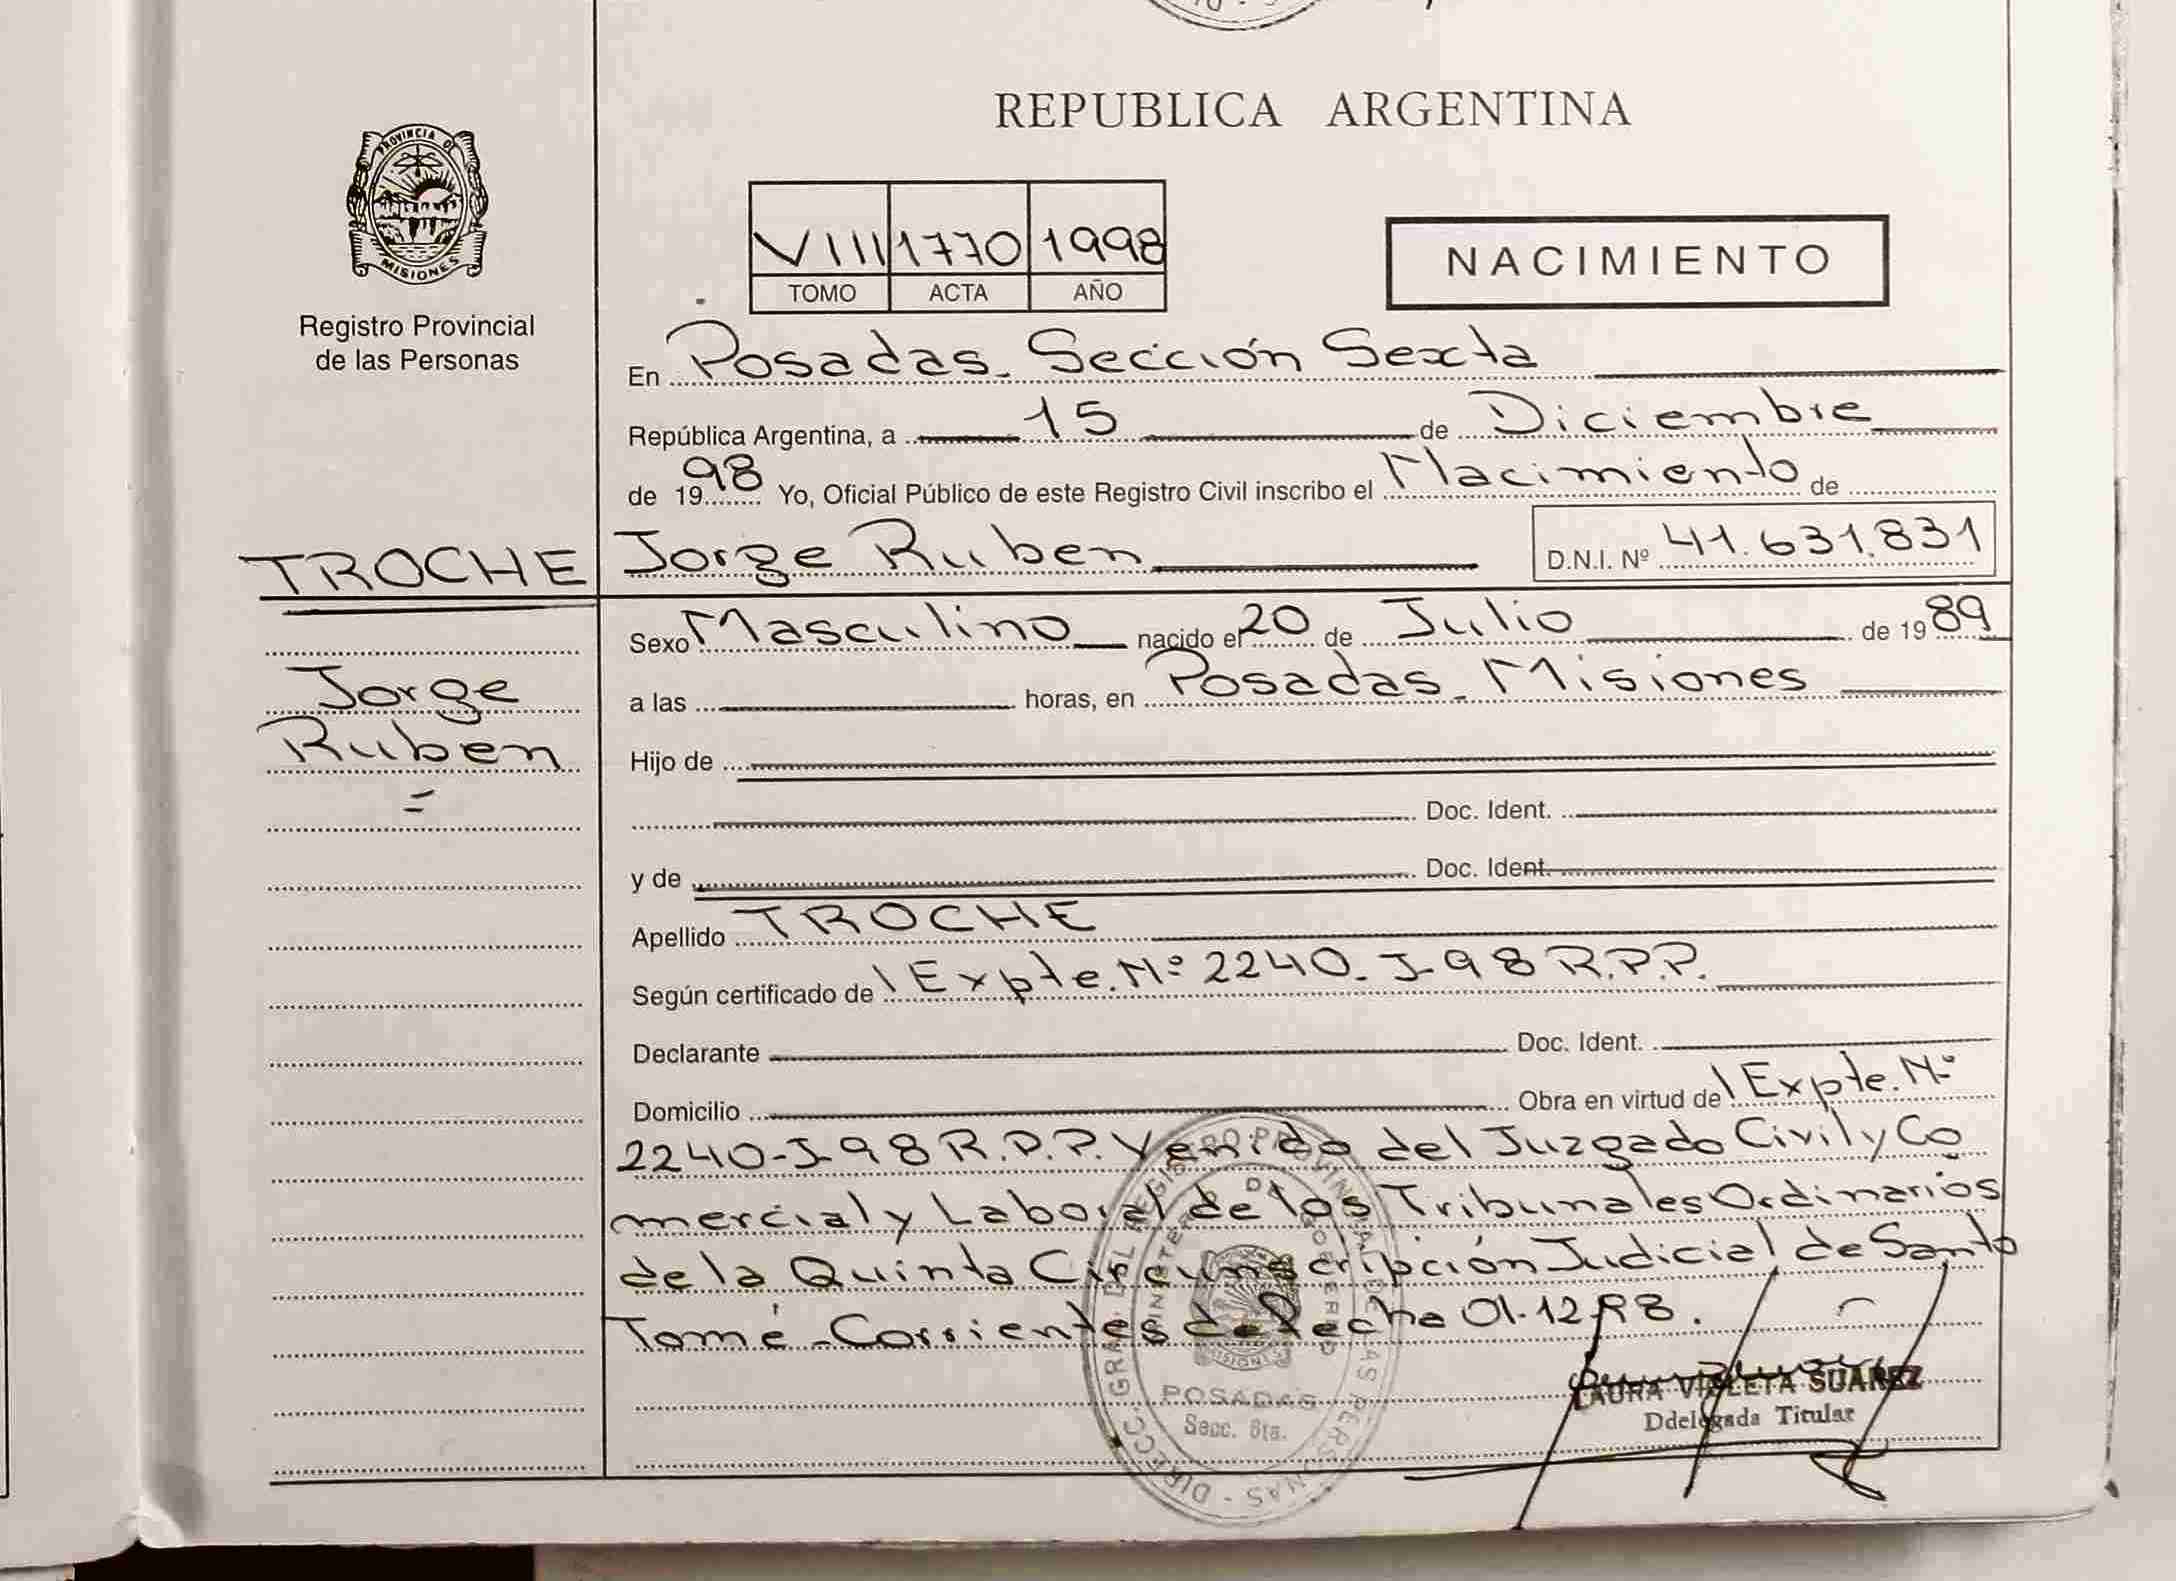 REPUBLICA ARGENTINA
PROVINCIA DE
MISIONES
Registro Provincial
de las Personas
VIII 1770 1998
TOMO ACTA AÑO
NACIMIENTO
En Posadas - Sección Sexta
República Argentina, a 15 de Diciembre
de 1998 Yo, Oficial Público de este Registro Civil inscribo el Nacimiento de
TROCHE Jorge Ruben D.N.I. Nº 41.631.831
Sexo Masculino nacido el 20 de Julio de 1989
Jorge
a las horas, en Posadas - Misiones
Ruben
Hijo de
Doc. Ident.
y de Doc. Ident.
Apellido TROCHE
Según certificado de Expte. Nº 2240-J-98 R.P.P.
Declarante Doc. Ident.
Domicilio Obra en virtud de Expte. Nº
2240-J-98 R.P.P. Venido del Juzgado Civil y Co
mercial y Laboral de los Tribunales Ordinarios
de la Quinta Circunscripción Judicial de Santo
Tomé - Corrientes de fecha 01-12-98.
LAURA VIOLETA SUAREZ
Ddelegada Titular
POSADAS
Secc. 6ta.
MISIONES